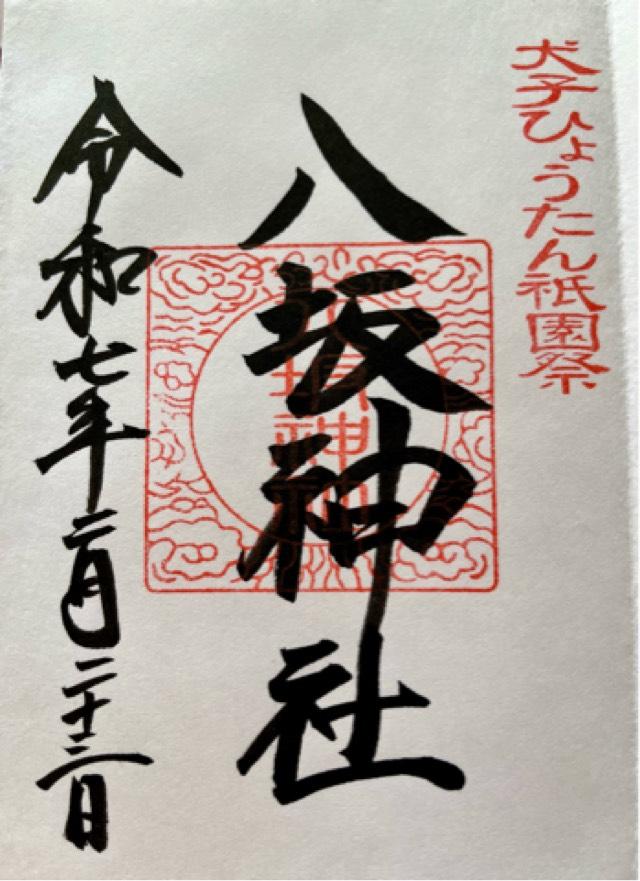 犬子ひょうたん祇園祭
八坂神社
令和七年二月二十三日